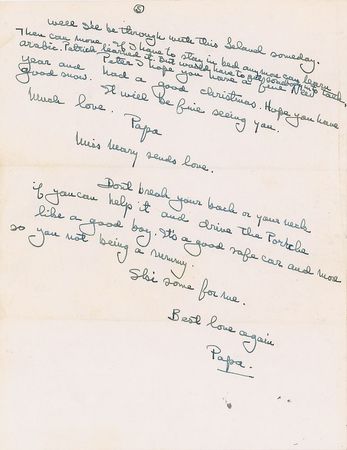 5
well I'll be through with this Island someday.
Then can move. If I have to stay in bed anymore can learn
arabic. Patrick learned it. But would have to get someone to teach.
Peter I hope you have a fine New
year and had a good christmas. Hope you have
good snow. It will be fine seeing you.
Much love.
Papa
Miss Mary sends love.
Dont break your back or your neck
if you can help it and drive the Porche
like a good boy. Its a good safe car and more
so you not being a rummy.
Ski some for me.
Best love again
Papa.